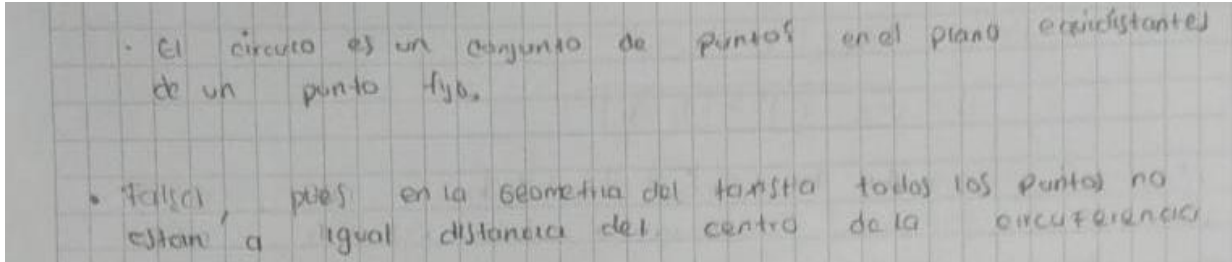 · El circulo es un conjunto de puntos en el plano equidistantes
de un punto fijo.
• Falsa, pues en la geometria del taxista todos los puntos no
estan a igual distancia del centro de la circuferencia